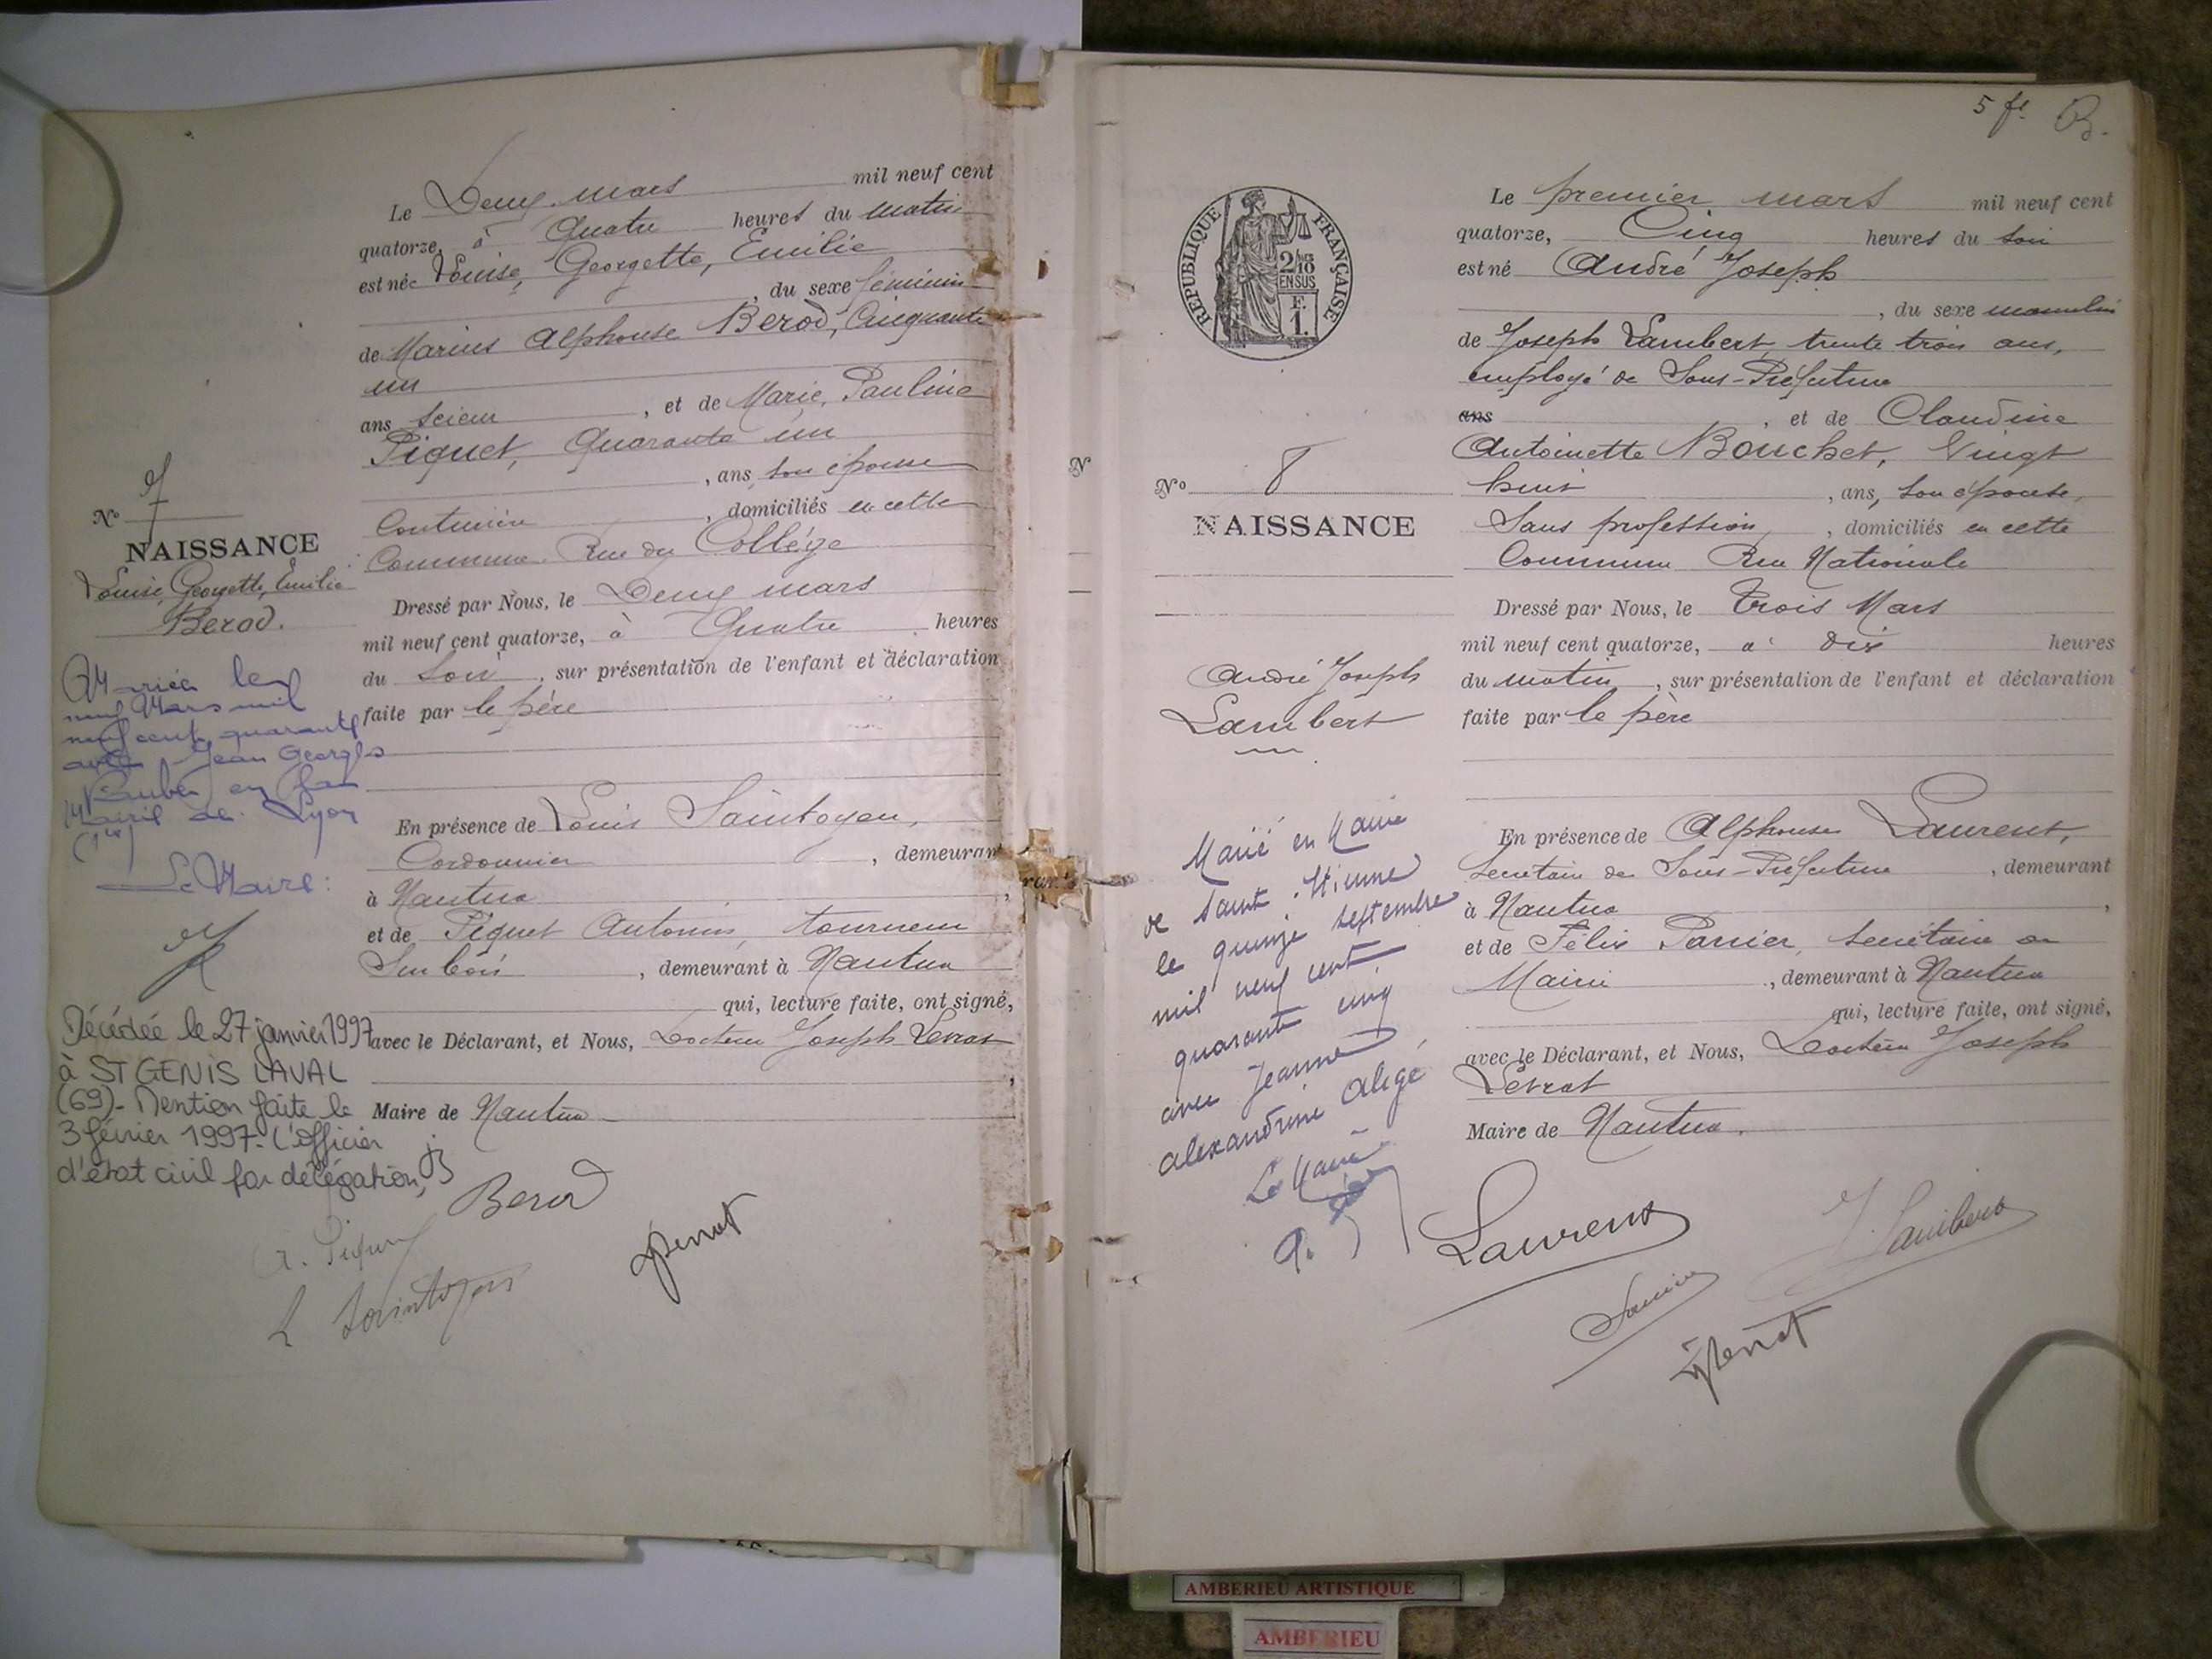 Le Deux mars mil neuf cent
quatorze, à Quatre heures du matin
est née Louise, Georgette, Emilie
, du sexe féminin
de Marius Alphonse Berod, Cinquante
un
ans Scieur , et de Marie, Pauline
Piquet, Quarante un
, ans, son épouse
Couturière , domiciliés en cette
Commune. Rue du Collége
Dressé par Nous, le Deux mars
mil neuf cent quatorze, à Quatre heures
du Soir , sur présentation de l'enfant et déclaration
faite par le père
En présence de Louis Saintoyen,
Cordonnier , demeurant
à Nantua ,
et de Piquet Antonin, tourneur
Sur bois , demeurant à Nantua
qui, lecture faite, ont signé,
avec le Déclarant, et Nous, Docteur Joseph Levrat
,
Maire de Nantua
Berod
A. Piquet
L Saintoyen
JLevrat
No 7
NAISSANCE
Louise, Georgette, Emilie
Berod.
Mariée le
neuf Mars mil
neuf cent quarante
avec Jean Georges
en la
Mairie de Lyon
(1er)
Le Maire:
Décédée le 27 janvier 1997
à ST GENIS LAVAL
(69)- Mention faite le
3 février 1997- L'officier
d'état civil par délégation,
5 ft
REPUBLIQUE FRANÇAISE
2/10
EN SUS
F.
1.
Le premier mars mil neuf cent
quatorze, Cinq heures du soir
est né André Joseph
, du sexe masculin
de Joseph Lambert trente trois ans,
employé de Sous-Préfecture
ans , et de Claudine
Antoinette Bouchet, Vingt
huit , ans, son épouse,
Sans profession , domiciliés en cette
Commune Rue Nationale
Dressé par Nous, le Trois Mars
mil neuf cent quatorze, à dix heures
du matin , sur présentation de l'enfant et déclaration
faite par le père
En présence de Alphonse Laurent,
Secrétaire de Sous-Préfecture , demeurant
à Nantua ,
et de Félix Panier, Secrétaire de
Mairie , demeurant à Nantua
qui, lecture faite, ont signé,
avec le Déclarant, et Nous, Docteur Joseph
Levrat
Maire de Nantua.
Laurent
J. Lambert
Panier
JLevrat
N
No 8
NAISSANCE
André Joseph
Lambert
Marié en Mairie
de Saint-Etienne
le quinze septembre
mil neuf cent
quarante cinq
avec Jeanne
alexandrine
Le Maire
AMBERIEU ARTISTIQUE
AMBERIEU